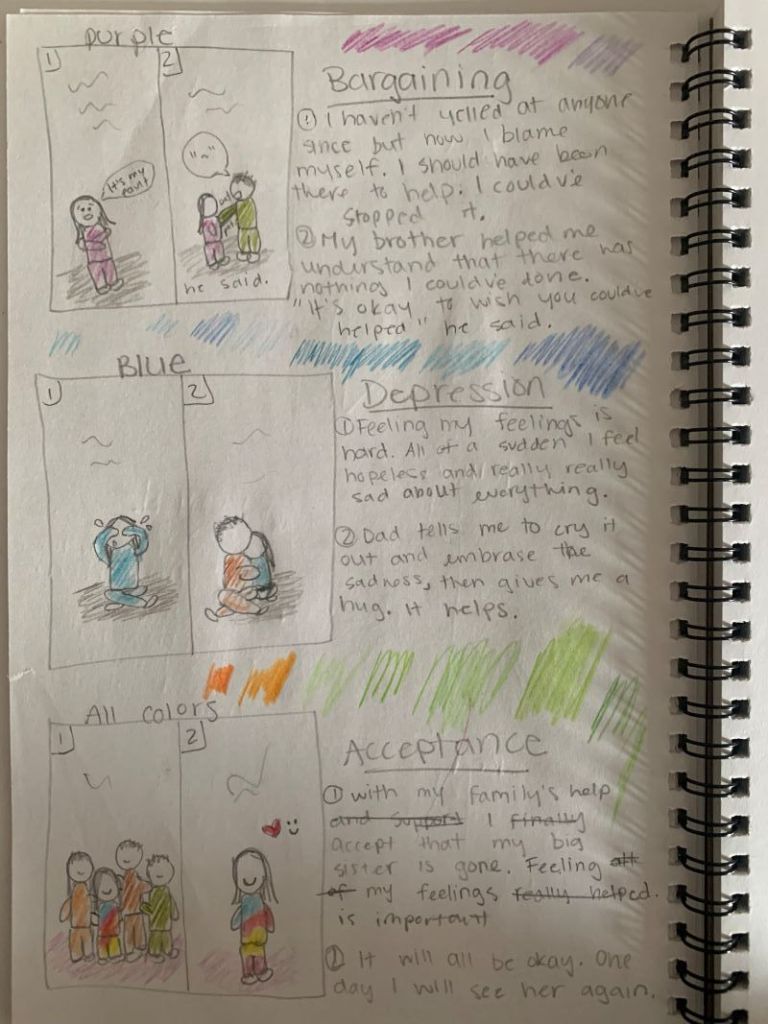 purple
1
2
It's my
fault
he said.
Bargaining
① I haven't yelled at anyone
since but now I blame
myself. I should have been
there to help. I could've
stopped it.
② My brother helped me
understand that there was
nothing I could've done.
"It's okay to wish you could've
helped" he said.
Blue
1
2
Depression
① Feeling my feelings is
hard. All of a sudden I feel
hopeless and really really
sad about everything.
② Dad tells me to cry it
out and embrase the
sadness, then gives me a
hug. It helps.
All colors
1
2
Acceptance
① with my family's help
and support I finally
accept that my big
sister is gone. Feeling all
of my feelings really helped.
is important
② It will all be okay. One
day I will see her again.